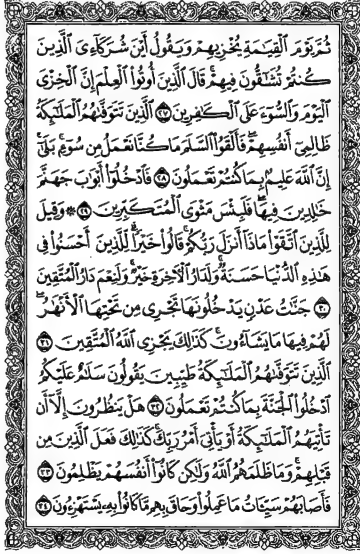 ثُمَّ يَوْمَ الْقِيَامَةِ يُخْزِيهِمْ وَيَقُولُ أَيْنَ شُرَكَاءِىَ الَّذِينَ
كُنتُمْ تُشَاقُّونَ فِيهِمْ قَالَ الَّذِينَ أُوتُوا الْعِلْمَ إِنَّ الْخِزْىَ
الْيَوْمَ وَالسُّوءَ عَلَى الْكَافِرِينَ ٢٧ الَّذِينَ تَتَوَفَّاهُمُ الْمَلَائِكَةُ
ظَالِمِى أَنفُسِهِمْ فَأَلْقَوُا السَّلَمَ مَا كُنَّا نَعْمَلُ مِن سُوءٍ بَلَى
إِنَّ اللَّهَ عَلِيمٌ بِمَا كُنتُمْ تَعْمَلُونَ ٢٨ فَادْخُلُوا أَبْوَابَ جَهَنَّمَ
خَالِدِينَ فِيهَا فَلَبِئْسَ مَثْوَى الْمُتَكَبِّرِينَ ٢٩ ۞ وَقِيلَ
لِلَّذِينَ اتَّقَوْا مَاذَا أَنزَلَ رَبُّكُمْ قَالُوا خَيْرًا لِّلَّذِينَ أَحْسَنُوا فِى
هَذِهِ الدُّنْيَا حَسَنَةٌ وَلَدَارُ الْآخِرَةِ خَيْرٌ وَلَنِعْمَ دَارُ الْمُتَّقِينَ
٣٠ جَنَّاتُ عَدْنٍ يَدْخُلُونَهَا تَجْرِى مِن تَحْتِهَا الْأَنْهَارُ
لَهُمْ فِيهَا مَا يَشَاءُونَ كَذَلِكَ يَجْزِى اللَّهُ الْمُتَّقِينَ ٣١
الَّذِينَ تَتَوَفَّاهُمُ الْمَلَائِكَةُ طَيِّبِينَ يَقُولُونَ سَلَامٌ عَلَيْكُمُ
ادْخُلُوا الْجَنَّةَ بِمَا كُنتُمْ تَعْمَلُونَ ٣٢ هَلْ يَنظُرُونَ إِلَّا أَن
تَأْتِيَهُمُ الْمَلَائِكَةُ أَوْ يَأْتِىَ أَمْرُ رَبِّكَ كَذَلِكَ فَعَلَ الَّذِينَ مِن
قَبْلِهِمْ وَمَا ظَلَمَهُمُ اللَّهُ وَلَكِن كَانُوا أَنفُسَهُمْ يَظْلِمُونَ ٣٣
فَأَصَابَهُمْ سَيِّئَاتُ مَا عَمِلُوا وَحَاقَ بِهِم مَّا كَانُوا بِهِ يَسْتَهْزِءُونَ ٣٤